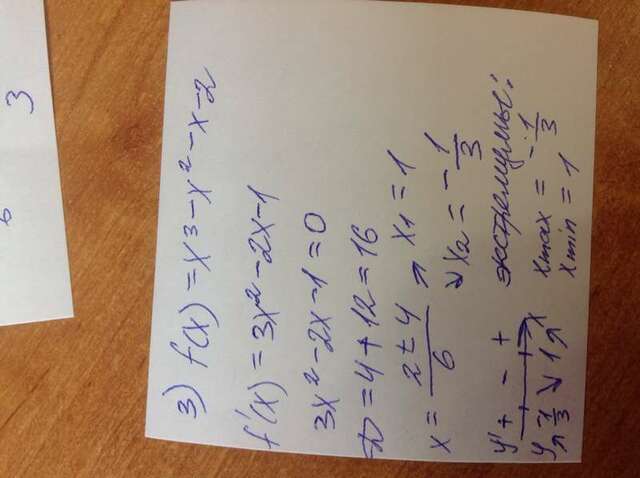 3
3) f(x) = x³-x²-x-2
f'(x) = 3x²-2x-1
3x²-2x-1=0
D=4+12=16
x = (2±4)/6 ↗ x1 = 1
↘ x2 = -1/3
y' + - + экстремумы:
y ↗ -1/3 ↘ 1 ↗ x
xmax = -1/3
xmin = 1